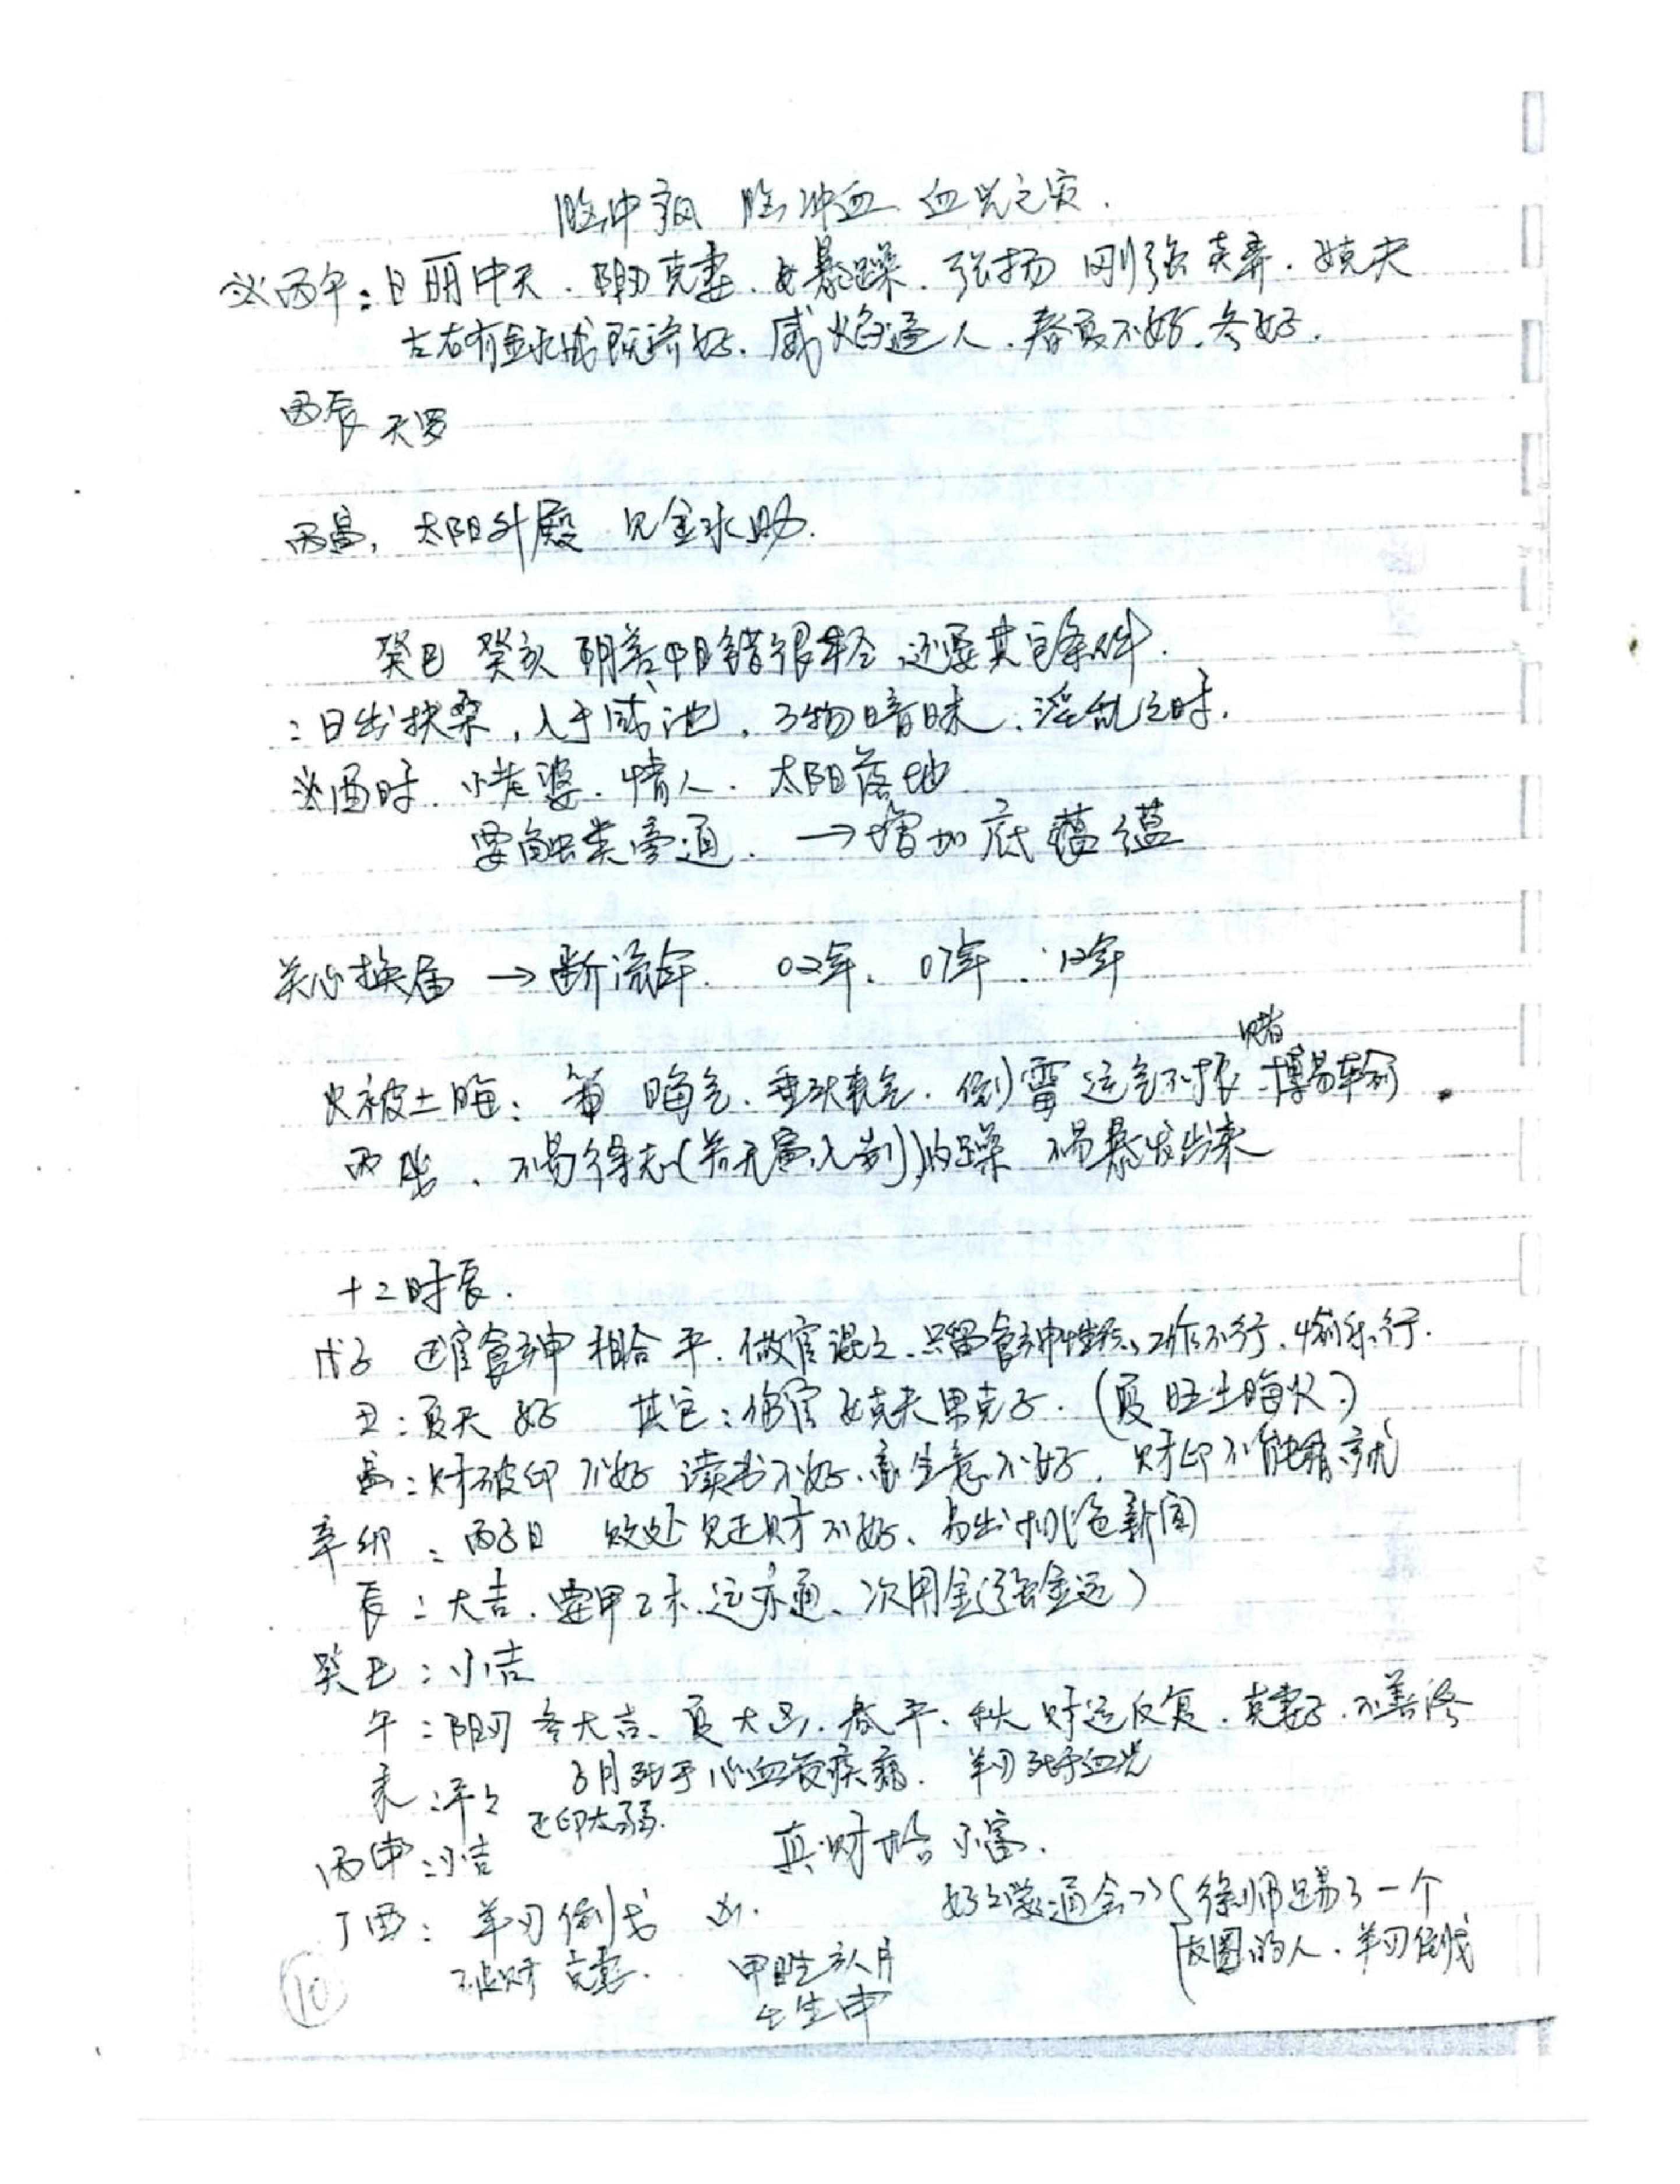 脑中风 脑冲血 血光之灾.
丙午：日丽中天. 阳刃克妻. 女暴躁. 张扬 刚强 克妻. 女克夫
左右有金水成既济好. 威焰逼人. 春夏不好. 冬好.
丙辰 天罗
丙寅, 太阳升殿 见金水助.
癸巳 癸亥 阴差阳错很轻 还要其它条件.
：日出扶桑, 入于咸池. 万物暗昧. 淫乱之时.
酉时. 小老婆. 情人. 太阳落地
要触类旁通. → 增加底蕴
关心换届 → 断流年. 02年. 07年. 12年
赌
火被土晦： 晦气. 垂头丧气. 倒霉 运气不振 博易输
丙 、不易得志 躁 不易暴发出来
十二时辰.
戊子 正官食神 相合 平. 做官混之. 只留食神性格, 工作不行.
丑：夏天好 其它：伤官女克夫男克子. (夏旺土晦火)
寅：财破印 不好 读书不好. 生意不好. 财印不能
辛卯：丙子日 败处见正财不好、易出桃色新闻
辰：大吉. 要甲乙木. 运亦通、次用金(强金运)
癸巳：小吉
午：阳刃 冬大吉. 夏大凶. 春平. 秋财运反复. 克妻子. 不善终
子月死于心血管疾病. 羊刃死于血光
未：平之 正印太弱.
丙申：小吉 真财格 小富.
丁酉：羊刃倒戈 凶.
正财 克妻.
甲日生亥月
生申
徐师踢了一个
友圈的人. 羊刃倒戈
10